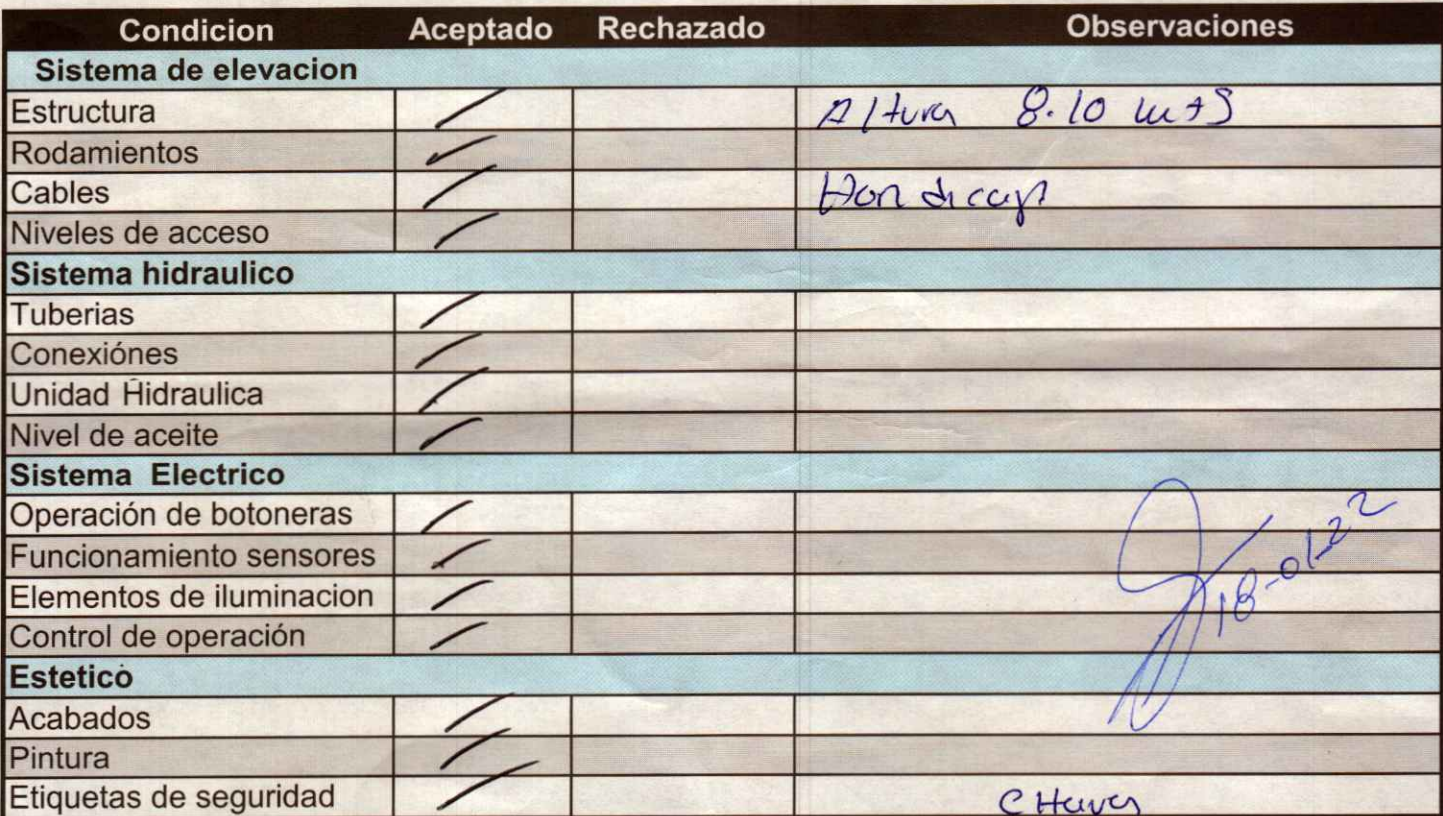 Condicion Aceptado Rechazado Observaciones
Sistema de elevacion
Estructura Altura 8.10 mts
Rodamientos
Cables
Niveles de acceso
Sistema hidraulico
Tuberias
Conexiónes
Unidad Hidraulica
Nivel de aceite
Sistema Electrico
Operación de botoneras
Funcionamiento sensores
18-01-22
Elementos de iluminacion
Control de operación
Estetico
Acabados
Pintura
Etiquetas de seguridad